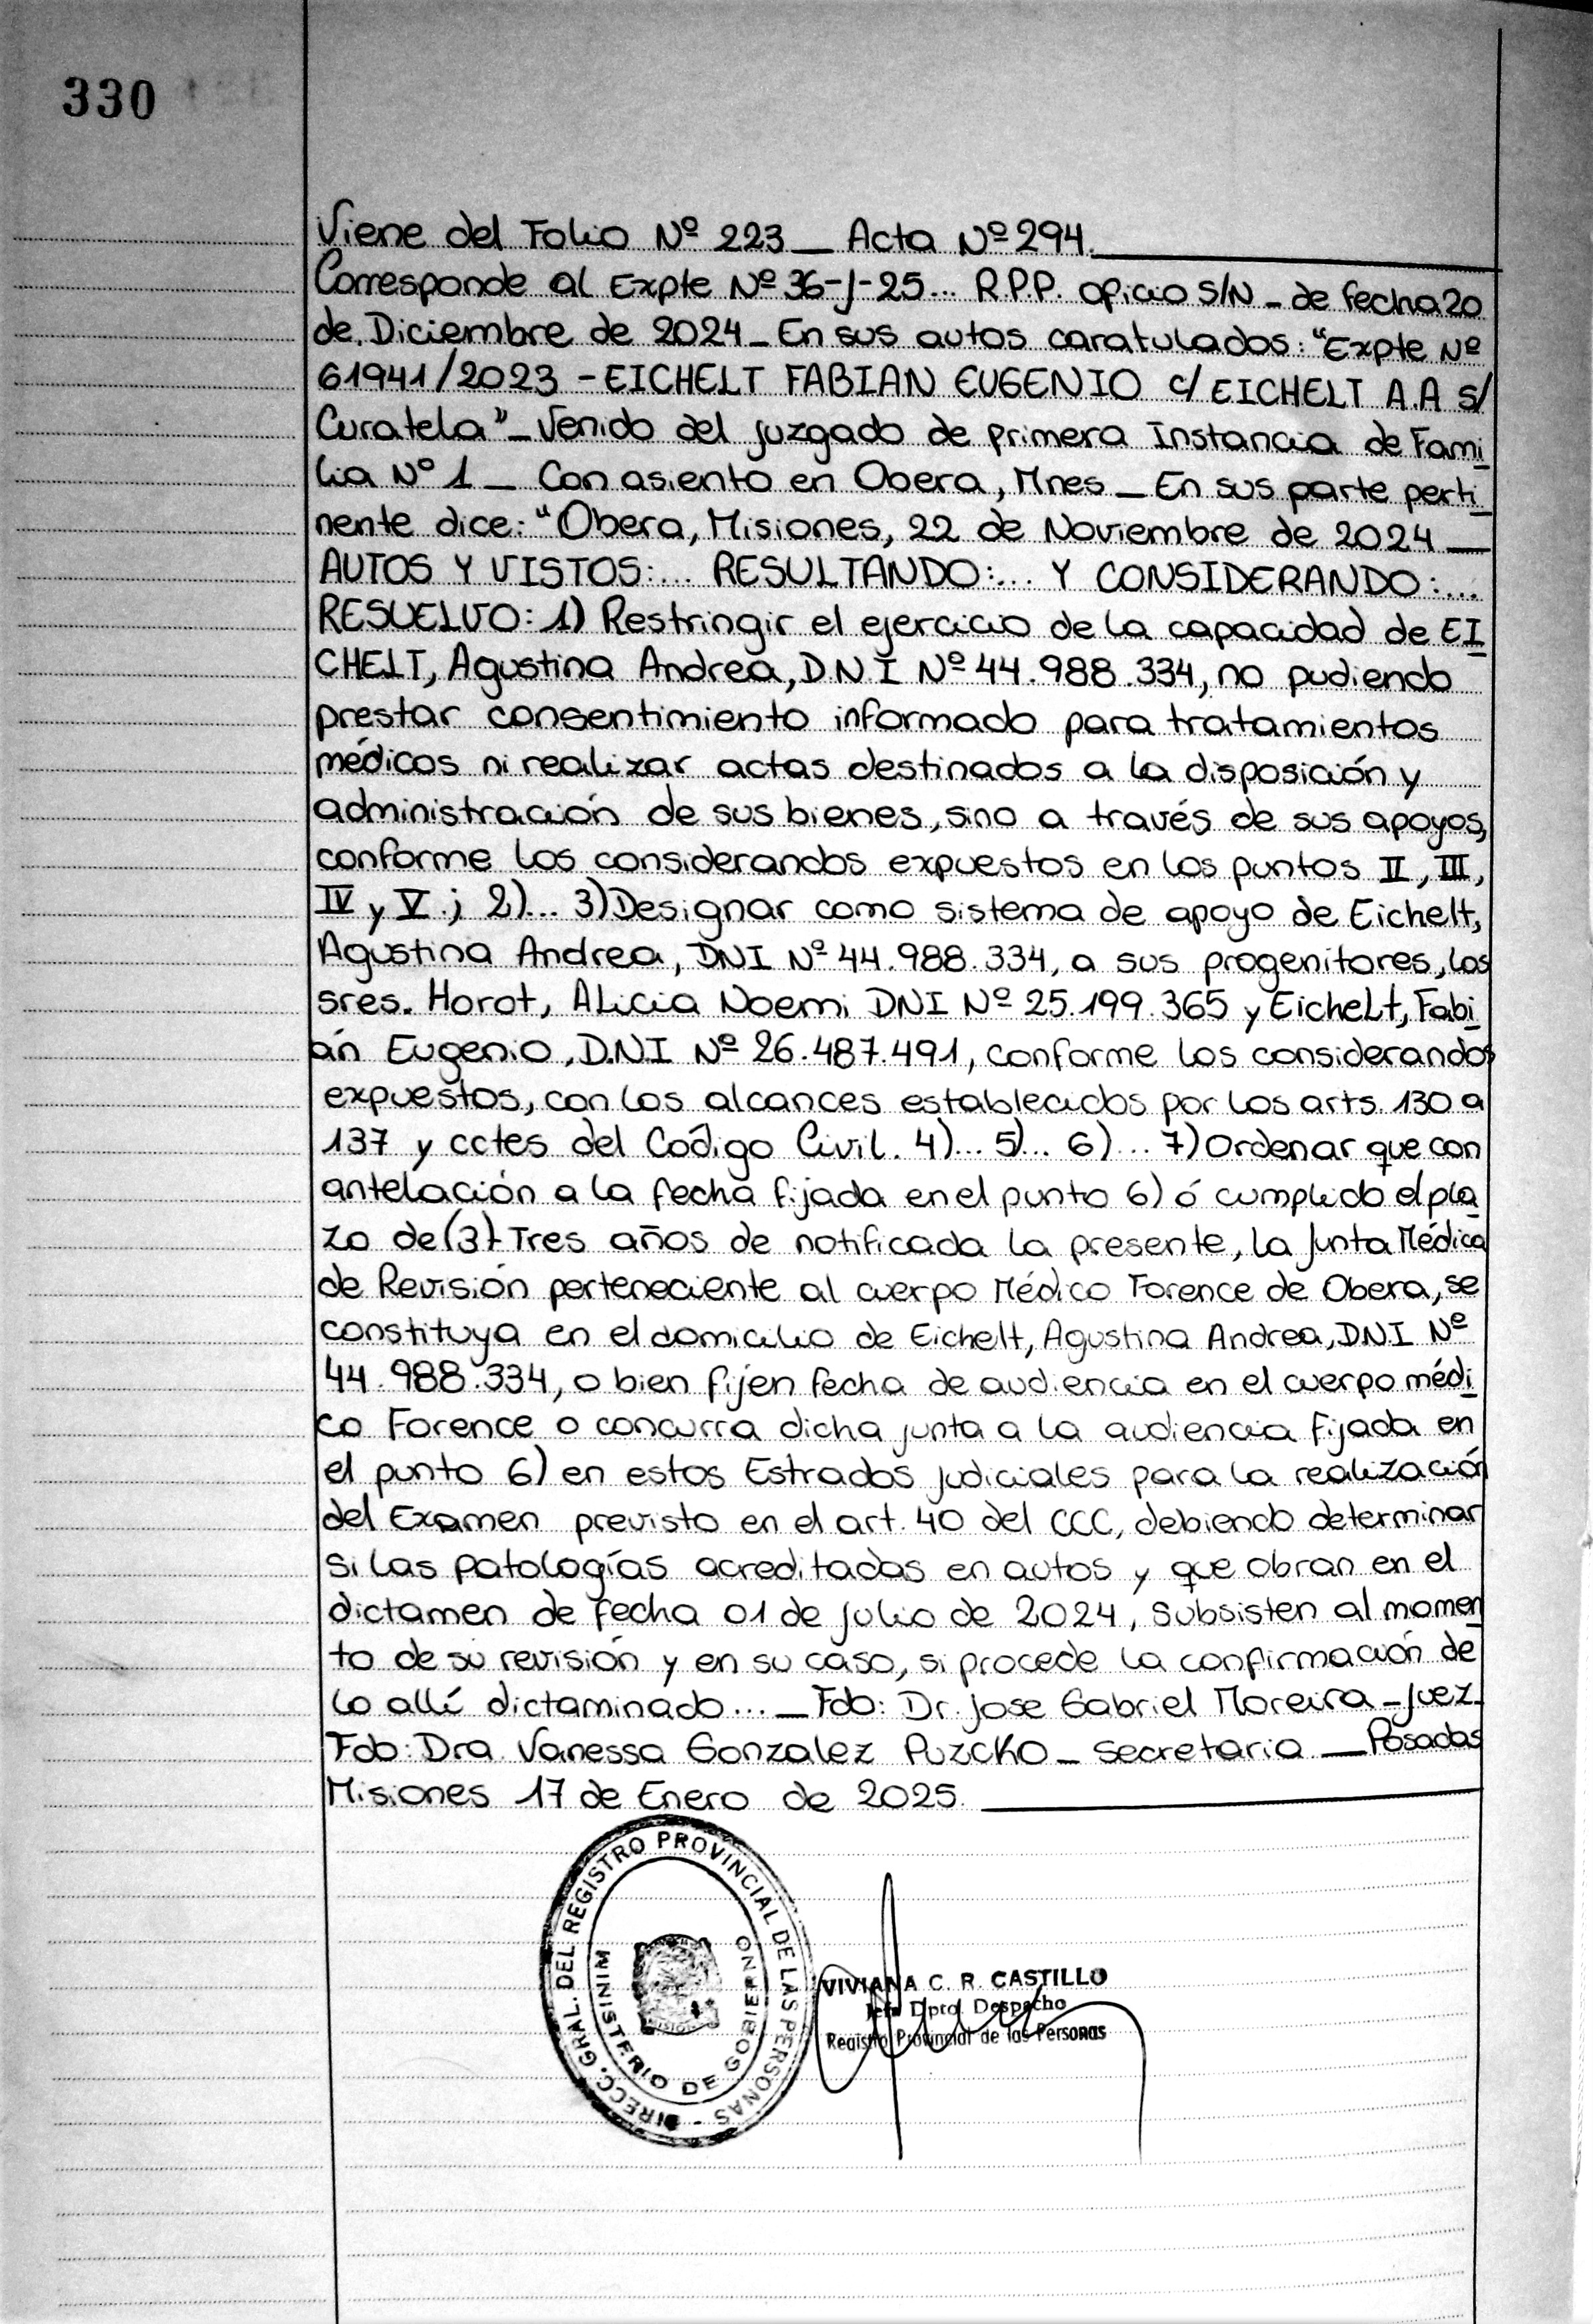 330
Viene del Folio Nº 223 _ Acta Nº 294.
Corresponde al Expte Nº 36-J-25... R.P.P. oficio S/N _ de fecha 20
de Diciembre de 2024 _ En sus autos caratulados: "Expte Nº
61941/2023 - EICHELT FABIAN EUGENIO c/ EICHELT A.A s/
Curatela" _ Venido del juzgado de primera Instancia de Fami
lia Nº 1 _ Con asiento en Obera, Mnes _ En sus parte perti
nente dice: "Obera, Misiones, 22 de Noviembre de 2024 _
AUTOS Y VISTOS:... RESULTANDO:... Y CONSIDERANDO:...
RESUELVO: 1) Restringir el ejercicio de la capacidad de EI
CHELT, Agustina Andrea, D.N.I Nº 44.988.334, no pudiendo
prestar consentimiento informado para tratamientos
médicos ni realizar actas destinados a la disposición y
administración de sus bienes, sino a través de sus apoyos,
conforme los considerandos expuestos en los puntos II, III,
IV y V.; 2)... 3) Designar como sistema de apoyo de Eichelt,
Agustina Andrea, DNI Nº 44.988.334, a sus progenitores, los
sres. Horot, Alicia Noemi DNI Nº 25.199.365 y Eichelt, Fabi
án Eugenio, D.N.I Nº 26.487.491, conforme los considerandos
expuestos, con los alcances establecidos por los arts. 130 a
137 y cctes del Código Civil. 4)... 5)... 6)... 7) Ordenar que con
antelación a la fecha fijada en el punto 6) ó cumplido el pla
zo de (3) Tres años de notificada la presente, la Junta Médica
de Revisión perteneciente al cuerpo Médico Forence de Obera, se
constituya en el domicilio de Eichelt, Agustina Andrea, D.N.I Nº
44.988.334, o bien fijen fecha de audiencia en el cuerpo médi
co Forence o concurra dicha junta a la audiencia fijada en
el punto 6) en estos Estrados judiciales para la realización
del Examen previsto en el art. 40 del CCC, debiendo determinar
si las patologías acreditadas en autos y que obran en el
dictamen de fecha 01 de Julio de 2024, subsisten al momen
to de su revisión y en su caso, si procede la confirmación de
lo allí dictaminado... _ Fdo: Dr. Jose Gabriel Moreira - Juez.
Fdo: Dra. Vanessa Gonzalez Puzcko _ secretaria _ Posadas
Misiones 17 de Enero de 2025.
DIRECC. GRAL. DEL REGISTRO PROVINCIAL DE LAS PERSONAS -
MINISTERIO DE GOBIERNO
VIVIANA C. R. CASTILLO
Jefa Dpto. Despacho
Registro Provincial de las Personas